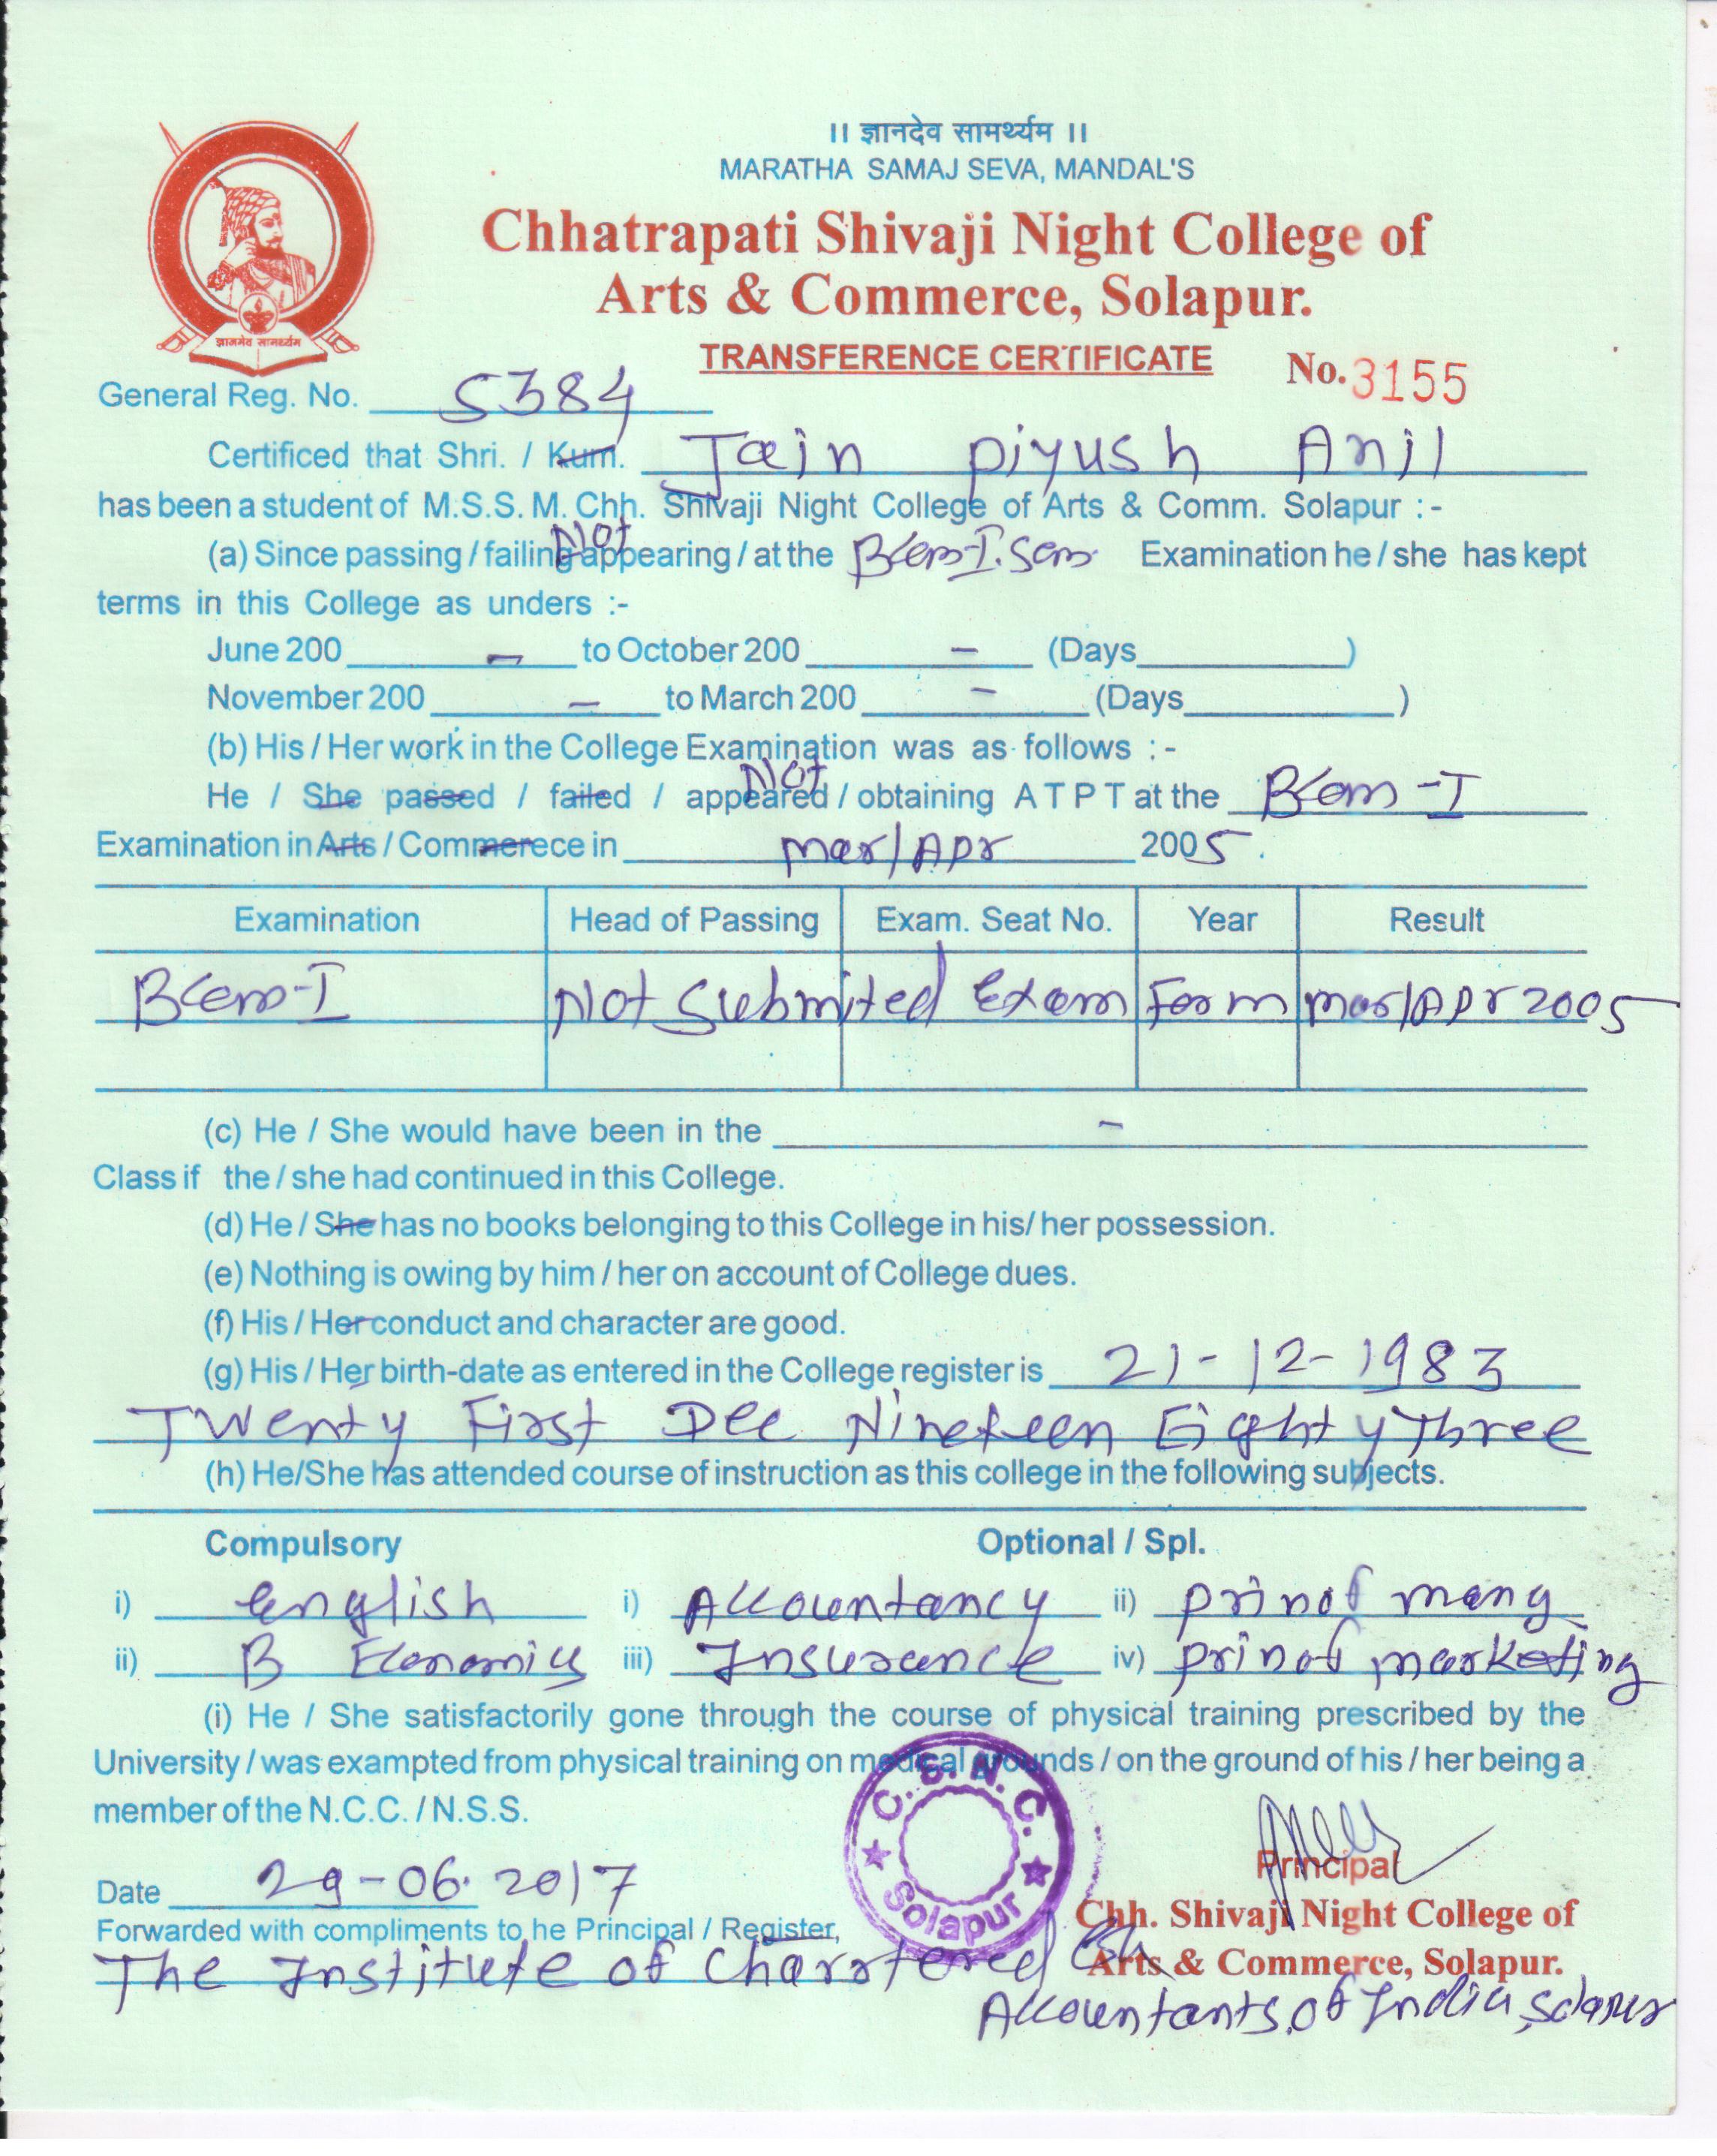 ।। ज्ञानदेव सामर्थ्यम ।।
MARATHA SAMAJ SEVA, MANDAL'S
Chhatrapati Shivaji Night College of
Arts & Commerce, Solapur.
ज्ञानदेव सामर्थ्यम
TRANSFERENCE CERTIFICATE No. 3155
General Reg. No. 5384
Certificed that Shri. / Kum. Jain Piyush Anil
has been a student of M.S.S.M. Chh. Shivaji Night College of Arts & Comm. Solapur :-
(a) Since passing / failing Not appearing / at the BCom-I. Sem Examination he / she has kept
terms in this College as unders :-
June 200 – to October 200 – (Days )
November 200 – to March 200 – (Days )
(b) His / Her work in the College Examination was as follows :-
He / She passed / failed / Not appeared / obtaining A T P T at the BCom-I
Examination in Arts / Commerece in Mar/Apr 2005.
Examination Head of Passing Exam. Seat No. Year Result
BCom-I Not Submited Exam Form Mar/Apr 2005
(c) He / She would have been in the –
Class if the / she had continued in this College.
(d) He / She has no books belonging to this College in his/ her possession.
(e) Nothing is owing by him / her on account of College dues.
(f) His / Her conduct and character are good.
(g) His / Her birth-date as entered in the College register is 21-12-1983
Twenty First Dec Nineteen Eighty Three
(h) He/She has attended course of instruction as this college in the following subjects.
Compulsory Optional / Spl.
i) English i) Accountancy ii) prin of mang
ii) B Economics iii) Insurance iv) prin of marketing
(i) He / She satisfactorily gone through the course of physical training prescribed by the
University / was exampted from physical training on medical grounds / on the ground of his / her being a
member of the N.C.C. / N.S.S.
C. S. N. C.
Solapur
Date 29-06-2017
Principal
Forwarded with compliments to he Principal / Register,
Chh. Shivaji Night College of
Arts & Commerce, Solapur.
The Institute of Charrtered
Accountants of India, Solapur